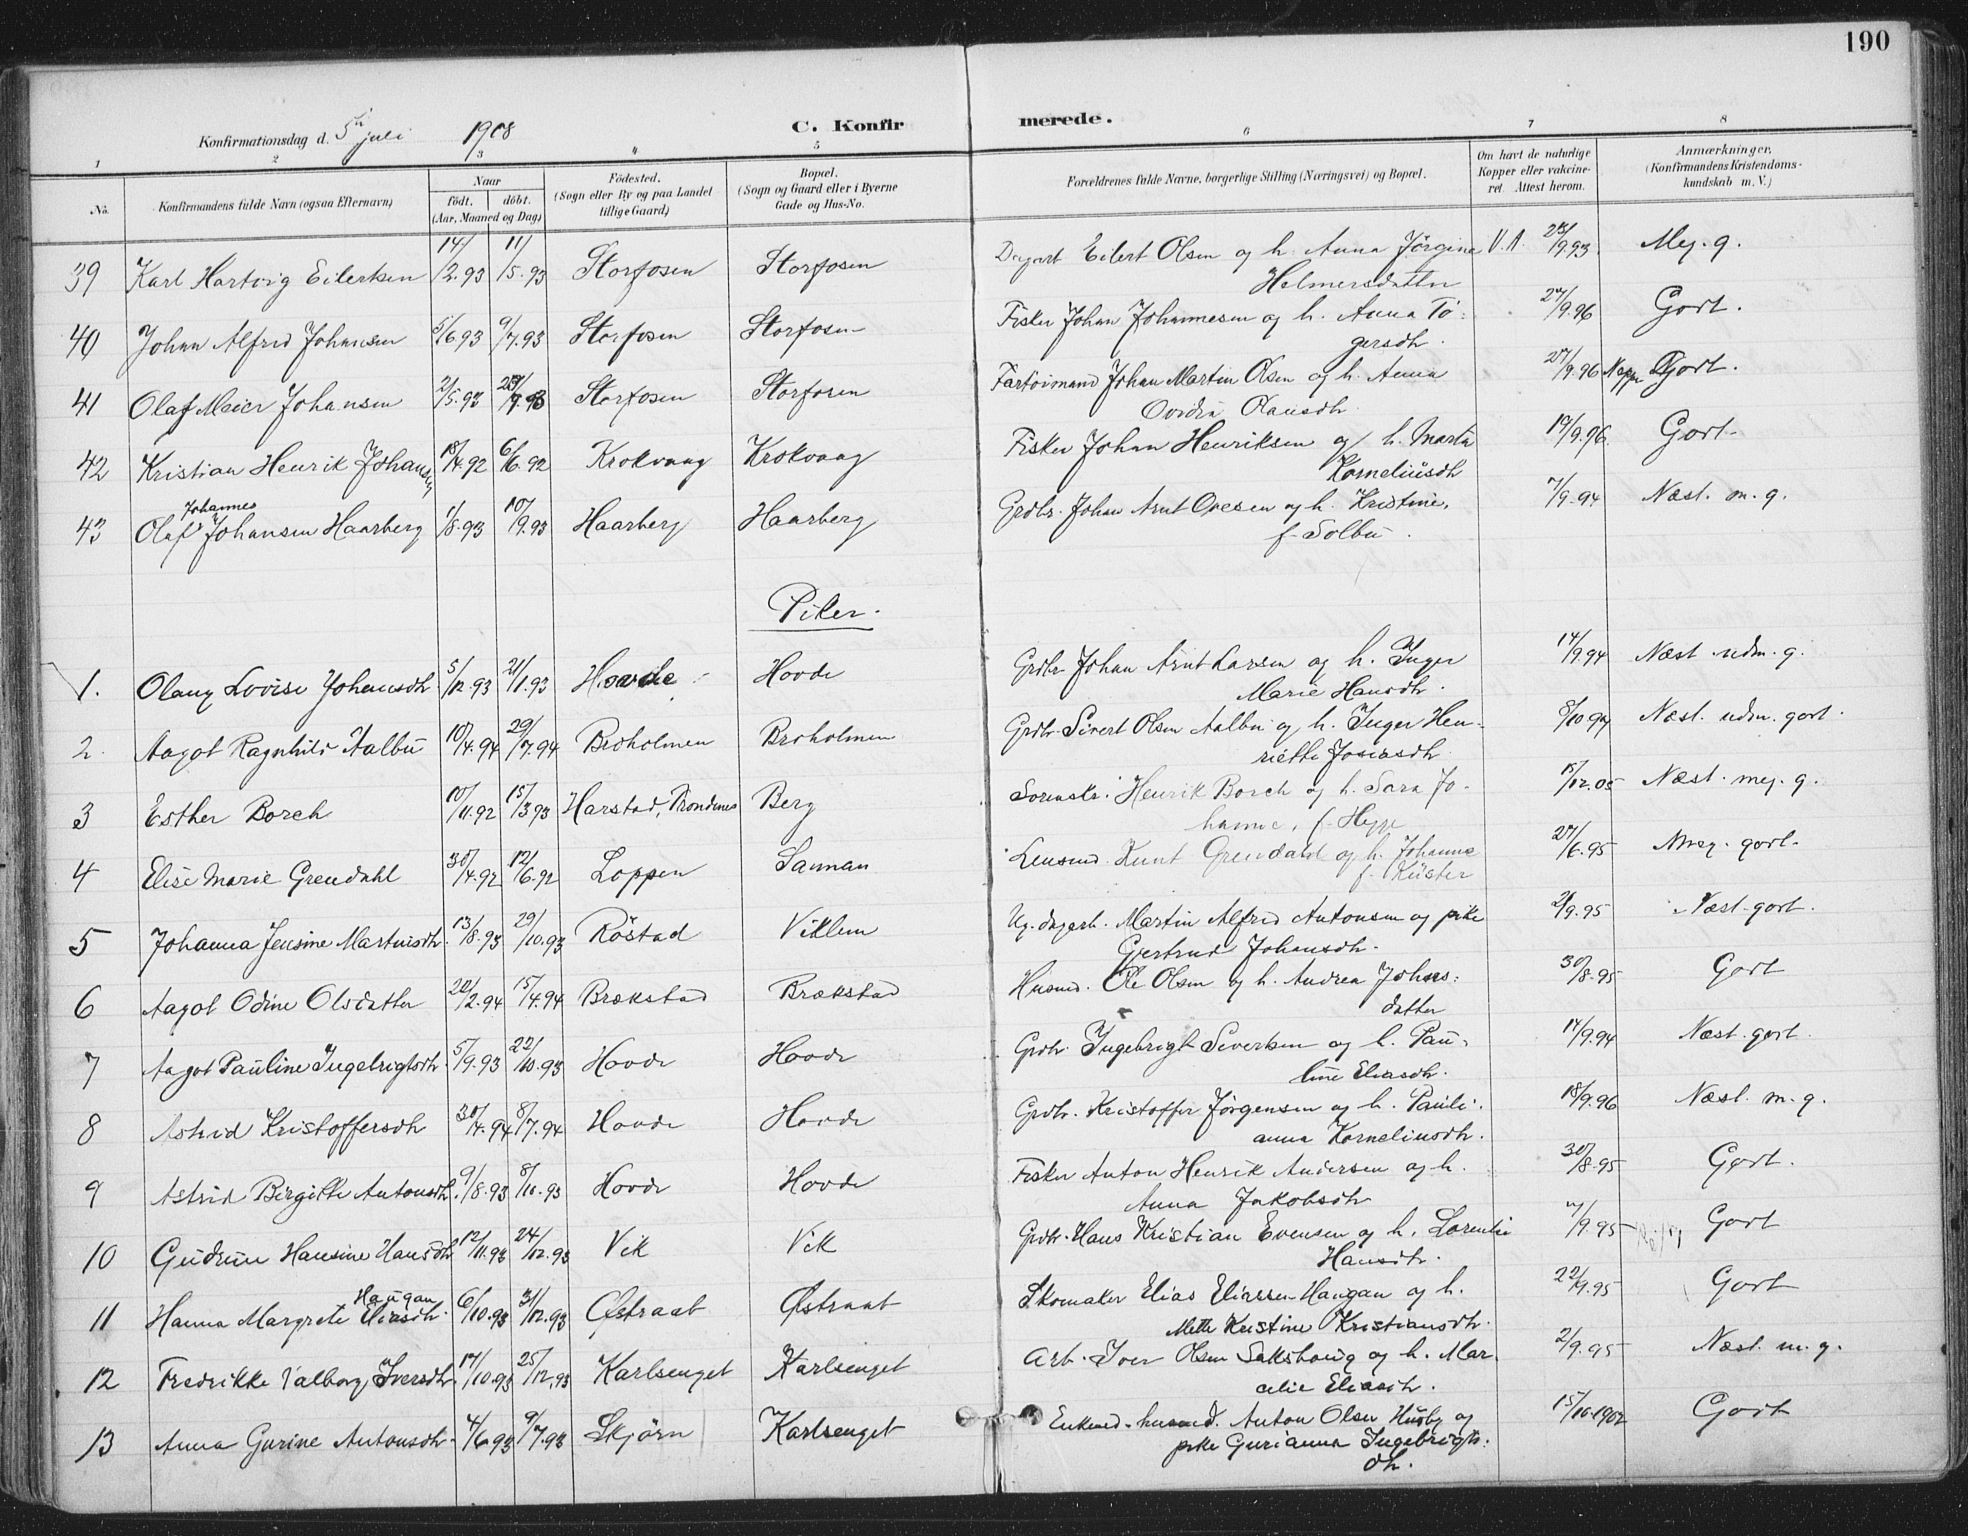 190
Konfirmationsdag d. 5te juli 1908 C. Konfirmerede.
1 2 3 4 5 6 7 8
No. Konfirmandens fulde Navn (ogsaa Efternavn) Naar født. døbt. (Aar, Maaned og Dag) Fødested. (Sogn eller By og paa Landet tillige Gaard) Bopæl. (Sogn og Gaard eller i Byerne Gade og Hus-No. Forældrenes fulde Navne, borgerlige Stilling (Næringsvei) og Bopæl. Om havt de naturlige Kopper eller vakcineret. Attest herom. Anmærkninger. (Konfirmandens Kristendomskundskab m. V.)
39 Karl Hartvig Eilertsen 14/2.93 11/5.93 Storfosen Storfosen Dagarb. Eilert Olsen og h. Anna Jørgine V.A. 23/9.93. Meg. g.
Helmersdatter
40 Johan Alfred Johansen 5/6.93 9/7.93 Storfosen Storfosen Fisker Johan Johannesen og h. Anna To: 27/9.96 Godt.
gersdtr.
41 Olaf Meier Johansen 2/5.93 Storfosen Storfosen Fartøimand Johan Martin Olsen og h. Anna 27/9.96 Neppe Godt.
Ovidia Olausdtr.
42 Kristian Henrik Johansen 18/4.92 6/6.92 Krokvaag Krokvaag Fisker Johan Henriksen og h. Marta 19/9.96. Godt.
Korneliusdtr
Johannes
43 Olaf Johansen Haarberg 1/8.93 10/9.93 Haarberg Haarberg Grdbr. Johan Arnt Ovesen og h. Kristine, 7/9.94 Næst. m. g.
f. Solbu.
Piker.
1. Olaug Lovise Johansdtr 5/12.93 21/1.93 Hovde Hovde Grdbr. Johan Arnt Larsen og h. Inger 14/9.94 Næst udm. g.
Marie Hansdtr.
2. Aagot Ragnhild Aalbu 10/4.94 29/7.94 Broholmen Broholmen Grdbr. Sivert Olsen Aalbu og h. Inger Hen- 8/10.97 Næst. udm. godt.
riette Josiasdtr
3 Esther Borch 10/11.92 15/3.93 Harstad, Trondenes Berg Sorenskr. Henrik Borch og h. Sara Jo- 15/12.05 Næst. meg. g.
hanne, f. Hegge
4 Elise Marie Grendahl 30/4.92 12/6.92 Loppen Sannan Lensmd. Knut Grendahl og h. Johanne 27/6.95 Meg. godt.
f. Küster
5 Johanna Jensine Martinsdtr. 13/8.93 29/10.93 Røstad Viklem Ug. dagarb. Martin Alfred Antonsen og pike 2/9.95 Næst. godt.
Gjertrud Johansdtr.
6 Aagot Odine Olsdatter 22/2.94 15/4.94 Brækstad Brækstad Husmd. Ole Olsen og h. Andrea Johans: 30/8.95 Godt
datter
7 Aagot Pauline Ingebrigtsdtr 5/9.93 22/10.93 Hovde Hovde Grdbr. Ingebrigt Sivertsen og h. Pau- 14/9.94 Næst. godt.
line Eliasdtr.
8 Astrid Kristoffersdtr 30/4.94 8/7.94 Hovde Hovde Grdbr. Kristoffer Jørgensen og h. Pauli- 18/9.96 Næst. m. g.
anna Korneliusdtr.
9 Astrid Birgitte Antonsdtr. 9/8.93 8/10.93 Hovde Hovde Fisker Anton Henrik Andersen og h. 30/8.95 Godt.
Anna Jakobsdtr
10 Gudrun Hansine Hansdtr 12/11.93 24/12.93 Vik Vik Grdbr. Hans Kristian Evensen og h. Lorentse /9.95 Godt
Hansdtr.
Haugan
11 Hanna Margrete Eliasdtr. 6/10.93 31/12.93 Østraat Østraat Skomaker Elias Eliassen Haugan og h. 22/9.95 Godt
Mette Kristine Kristiansdtr.
12 Fredrikke Valborg Iversdtr. 17/10.93 25/12.93 Karlsenget Karlsenget Arb. Iver Olsen Sakshaug og h. Mar- 2/9.95 Næst. m. g.
celie Eliasdtr.
13 Anna Gurine Antonsdtr. 4/6.93 9/7.93 Skjørn Karlsenget Enkemd. husmd. Anton Olsen Husby og 15/10.1902 Godt
pike Gurianna Ingebrigts:
dtr.